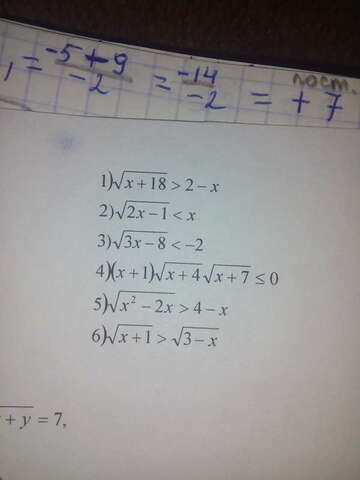 , = -5 + 9 / -2 = -14 / -2 = + 7 пост.
1)√(x+18) > 2 − x
2)√(2x−1) < x
3)√(3x−8) < −2
4)(x+1)√(x+4)√(x+7) ≤ 0
5)√(x² − 2x) > 4 − x
6)√(x+1) > √(3−x)
+ y = 7,